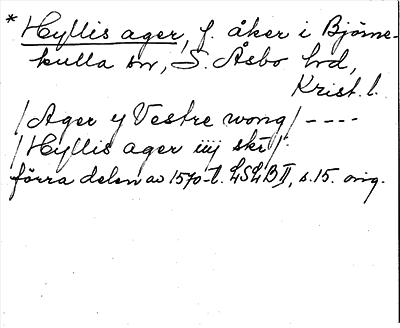 * Hyllis ager, f. åker i Björne-
kulla sn, S. Åsbo hd,
Krist. l.
/Ager y Vestre wong/ ----
/Hyllis ager iiij skt/.
förra delen av 1570-t. LSLB II, s. 15. orig.